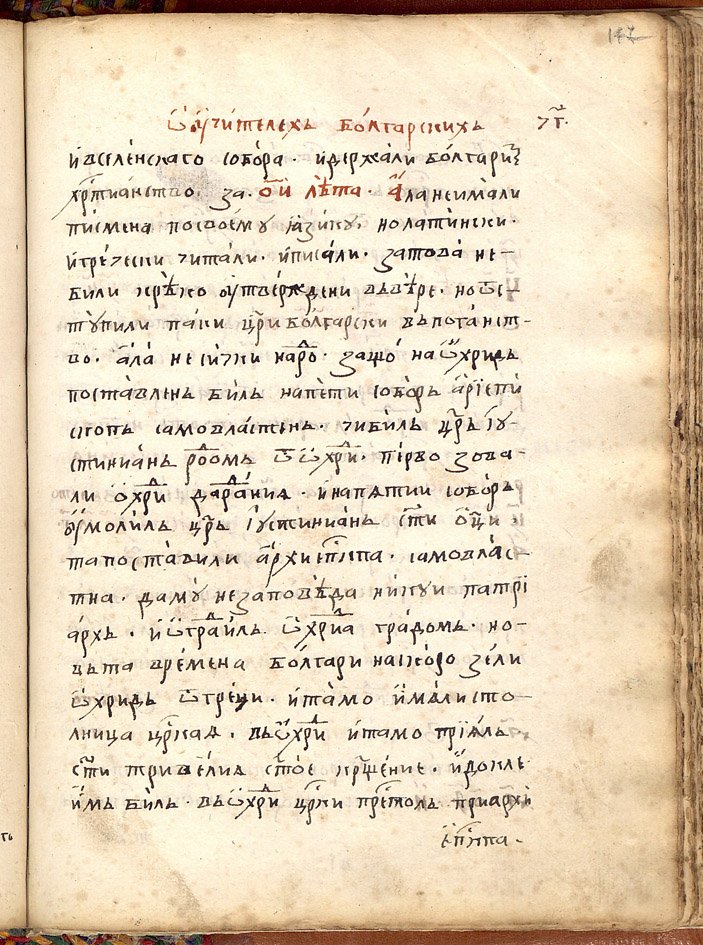 147
Ѿ ѹчи́телехъ бо́лгарскихъ
ч҃г.
и҆вселе́нскаго собо́ра · и҆держа́ли бо́лгари
хрⷭ҇тиа́нство, за · о҃и лѣта · а҆ла неима́ли
пи́смена посвое́му ꙗ҆зи́ку, нолати́нски ·
и҆гре́чески чита́ли · и҆писа́ли · затова̀ не-
били крѣ́ко ѹ҆тверждени вьвѣ́ре · ноѿс-
тꙋпили паки цр҃и болгарски вьпога́нст-
во · а҆ла̀ неси́чки наро́ⷣ · защо̀ наѡ҆́хридь
поста́вленъ би́лъ напе́ти собо́ръ а҆рїепи
скопъ самовла́стенъ · чиби́лъ цр҃ъ і҆ꙋ-
стиниа́нъ ро́ⷣомъ ѿ ѡ҆хриⷣ · пе́рво зова-
ли ѡ҆́хриⷣ дарⷣа́ниꙗ · и҆напѧтии собо́рь
ѹ҆моли́лъ цр҃ъ і҆ꙋстиниа́нъ ст҃и ѻ҆ц҃и
тапоста́вили а҆рхиепⷭ҇кпа · самовла́с-
тна · дамꙋ̀ незаповѣ́да ни́кои патрї
а́рхъ · и҆ѿгра́ⷣилъ ѡ҆хриⷣа градомъ · но-
вьта вре́мена бо́лгари наско́ро зе́ли
ѡ҆́хридь ѿгре́ци · и҆та́мо и҆ма́ли сто-
лница цр҃каѧ · вьѡ҆хриⷣ и҆та́мо прїѧ́лъ
ст҃и триве́лиѧ ст҃о́е крⷳ҇ще́ние · и҆докле
и҆мъ билъ · вьѡ҆хриⷣ цр҃ки преⷭ҇толъ приархи
е҆пⷭ҇кпа ·